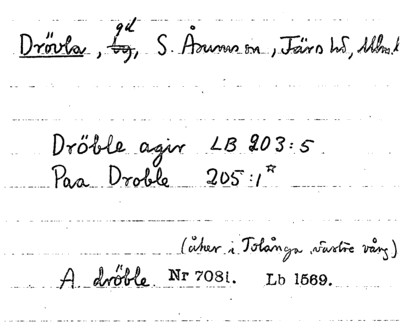 Drövla, gd, S. Åsumson, Färs hd, Mlm. l
Dröble agir LB 203:5
Paa Droble 205:1*
(åker i Tolånga västre vång)
A dröble. Nr 7081. Lb 1569.